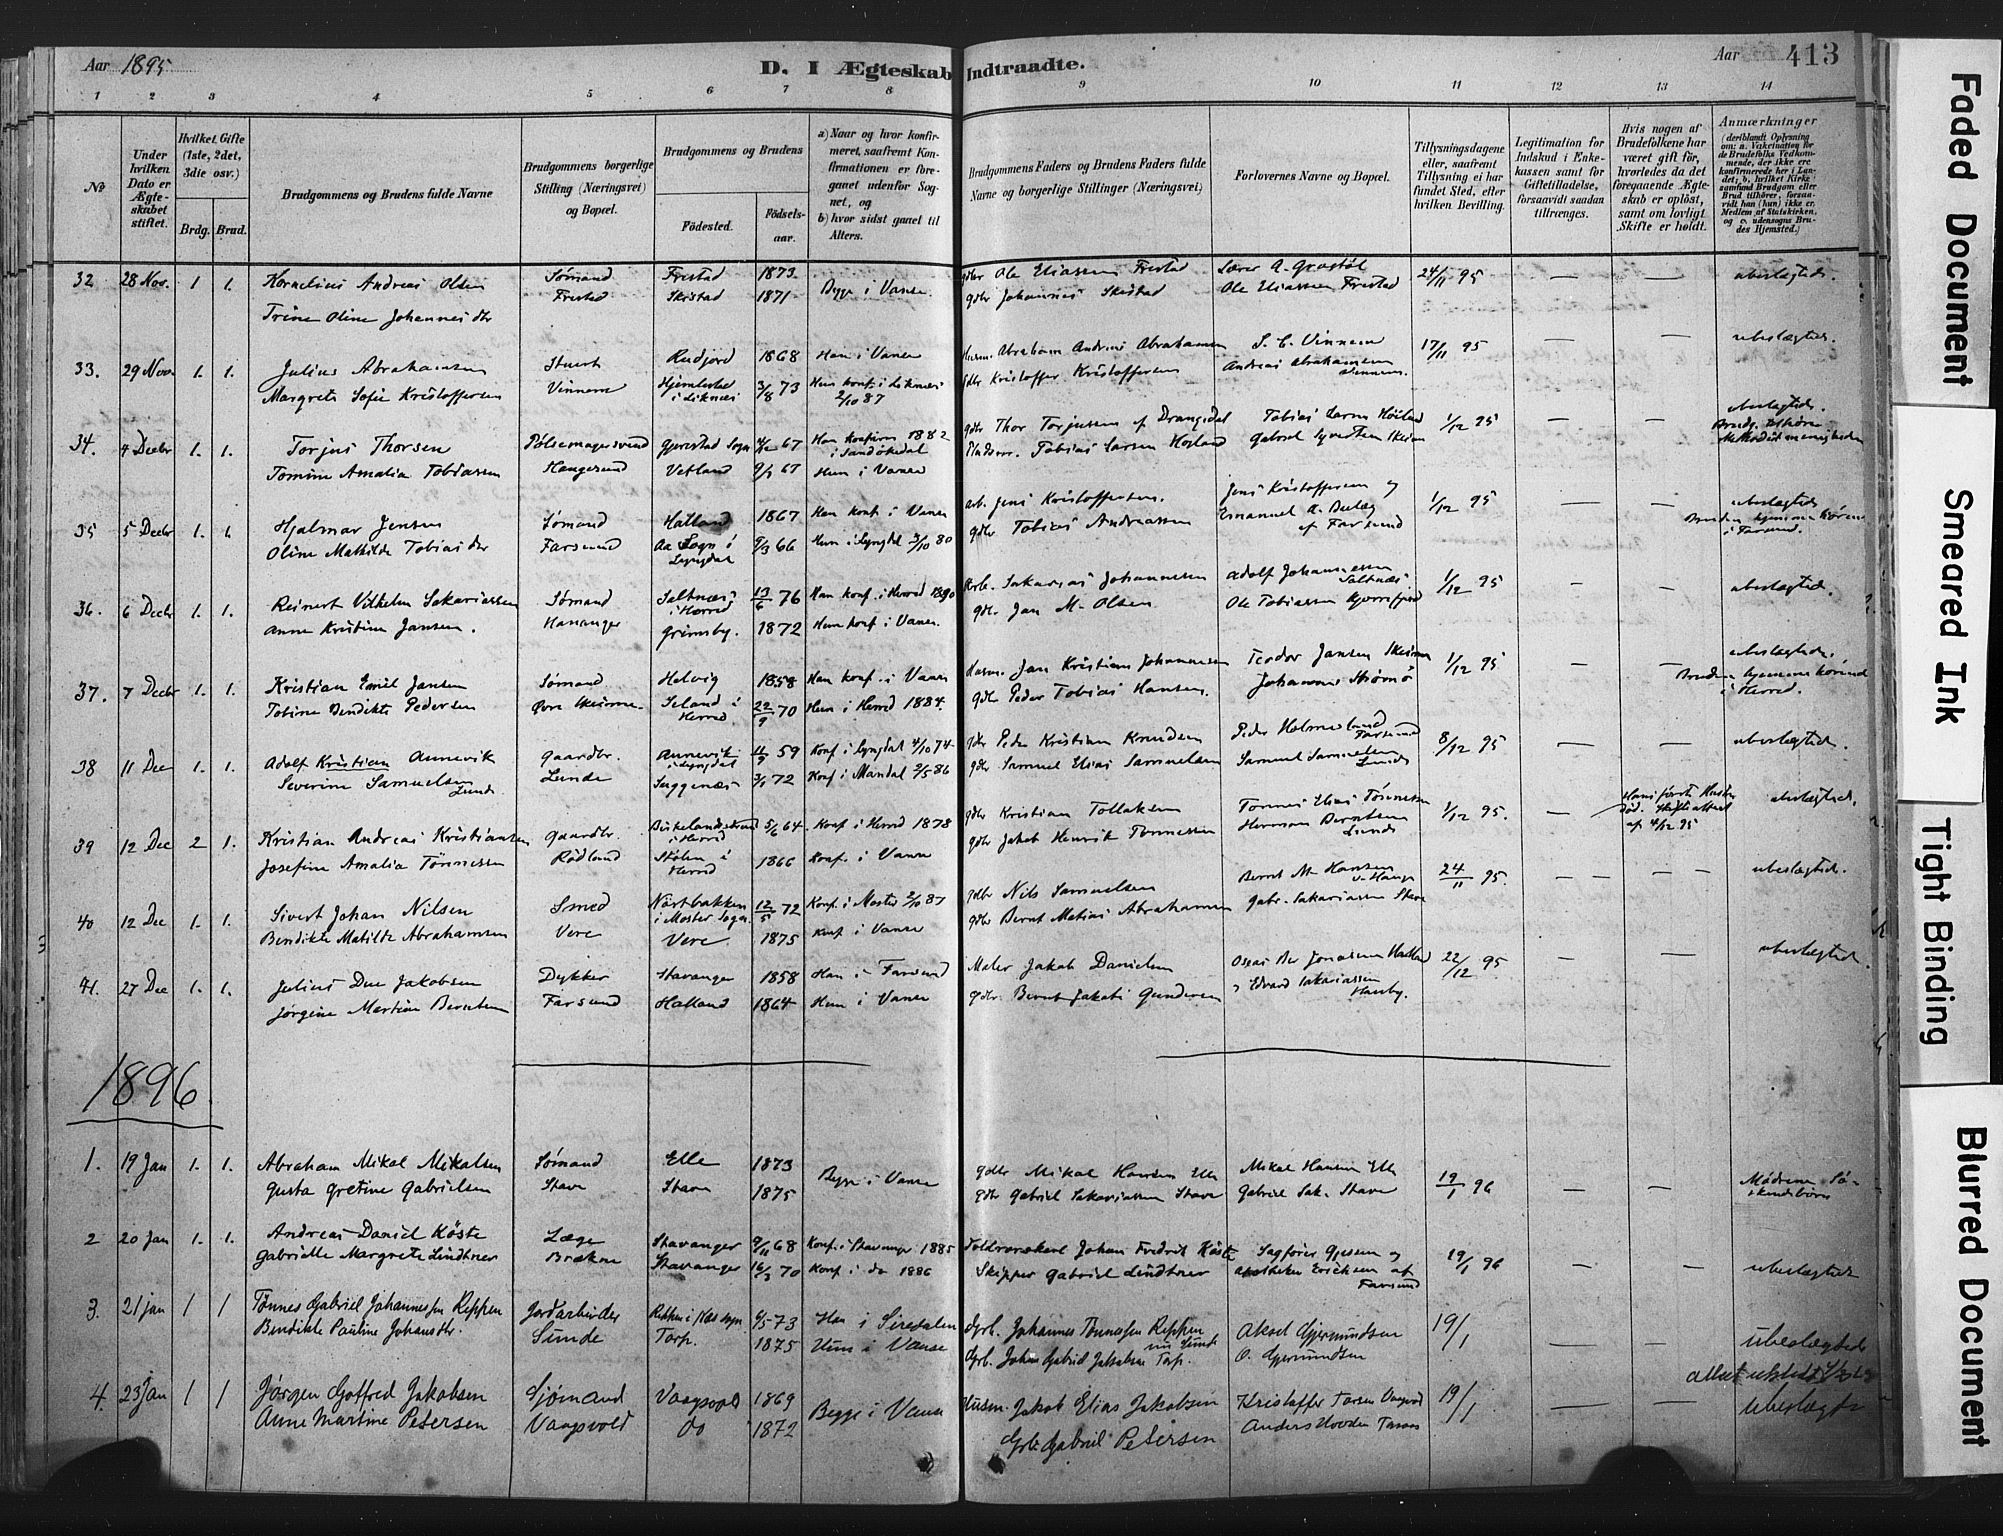 Aar 1895
D. I Ægteskab Indtraadte.
Aar 413
1 2 3 4 5 6 7 8 9 10 11 12 13 14
No
Under hvilken Dato er Ægteskabet stiftet.
Hvilket Gifte (1ste, 2det, 3die osv.)
Brdg. Brud.
Brudgommens og Brudens fulde Navne
Brudgommens borgerlige Stilling (Næringsvei) og Bopæl.
Brudgommens og Brudens
Födested.
Födselsaar.
a) Naar og hvor konfirmeret, saafremt Konfirmationen er foregaaet udenfor Sognet, og
b) hvor sidst gaaet til Alters.
Brudgommens Faders og Brudens Faders fulde Navne og borgerlige Stillinger (Næringsvei)
Forlovernes Navne og Bopæl.
Tillysningsdagene eller, saafremt Tillysning ei har fundet Sted, efter hvilken Bevilling.
Legitimation for Indskud i Enkekassen samt for Giftetilladelse, forsaavidt saadan tiltrænges.
Hvis nogen af Brudefolkene har været gift för, hvorledes da det foregaaende Ægteskab er oplöst, samt om lovligt Skifte er holdt.
Anmærkninger (deriblandt Oplysning om: a. Vakcination for de Brudefolks Vedkommende, der ikke ere konfirmerede her i Landet; b. hvilket Kirkesamfund Brudgom eller Brud tilhörer, forsaavidt han (hun) ikke er Medlem af Statskirken, og c. udensogns Brudes Hjemsted.)
32 28 Nov. 1 1. Kornelius Andreas Olsen Sømand Frestad 1873 Begge i Vanse. gdbr Ole Eliassen Frestad Lærer A. Grostøl 24/11 95 — — ubeslægtede.
Trine Oline Johannesdtr Frestad Skistad 1871 gdbr Johannes Skistad Ole Eliassen Frestad
33. 29 Nov. 1. 1. Julius Abrahamsen Stuert Rudjord 1868 Han i Vanse Husm. Abraham Andreas Abrahamsen S. C. Vinnem 17/11 95 — — ubeslægtede.
Margrete Sofie Kristoffersen Vinnem i Liknes 3/8 73 Hun konf. i Liknes 2/10 87 gdbr Kristoffer Kristoffersen Andreas Abrahamsen Vinnem
34. 4 Decbr 1. 1. Torjus Thorsen Pølsemagersvend Gjerestad Sogn 67 Han konfirm 1882 i Sandøkedal gdbr Thor Torjussen af Drangsdal Tobias Larsen Høiland 1/12 95 — — ubeslægtede. Brudg. tilhører Methodistmenigheden
Tomine Amalia Tobiassen Haugesund Vetland 9/3 67 Hun i Vanse Tobias Larsen Høiland Gabriel Syvertsen
35 5 Decbr 1. 1. Hjalmar Jensen Sømand Hatland 1867 Han konf. i Vanse arb. Jens Kristoffersen. Jens Kristoffersen og 1/12 95 — — ubeslægtede
Oline Mathilde Tobiasdtr Farsund Aa Sogn i Lyngdal 9/3 66 Hun i Lyngdal 3/10 80 gdbr Tobias Andreassen Emanuel A. af Farsund Bruden hjemmehørende i Farsund.
36. 6 Decbr 1. 1. Reinert Vilhelm Sakariassen Sømand Saltnæs i Herred 13/6 76 Han konf. i Herred 1890 Sakarias Johannessen Adolf Johannessen Saltnæs 1/12 95 — — ubeslægtede.
Anne Kristine Jansen. Hananger Grimsby. 1872 Hun konf. i Vanse. gdbr. Jan M. Olsen Ole Tobiassen
37. 7 Decbr 1. 1. Kristian Emil Jansen Sømand Helvig 1858 Han konf. i Vanse Husm. Jan Kristian Johannessen Teodor Jansen Skeime 1/12 95 — — ubeslægtede.
Tobine Bendikte Pedersen Øvre Skeime Seland i Herred 22/9 70 Hun i Herred 1884. gdbr Peder Tobias Hansen. Johannes Strømø Bruden hjemmehørende i Herred.
38 11 Dec 1. 1. Adolf Kristian Aunevik Gaardbr. Aunevik i Lyngdal 11/9 59 Konf. i Lyngdal 4/10 74 gdbr Peder Kristian Knudsen Peder Holmesland Farsund 8/12 95 — — ubeslægtede.
Severine Samuelsen Lunde Lunde Seggenæs 3/1 72 Konf. i Mandal 2/5 86 gdbr Samuel Elias Samuelsen Samuel Samuelsen Lunde
39 12 Dec 2 1. Kristian Andreas Kristiansen Gaardbr. Birkelandstrand i Herred 5/6 64 Konf. i Herred 1878 gdbr Kristian Tollaksen Tønnes Elias Tønnessen 1/12 95. — Hans første Hustru død. Skifteattest af 4/12 95 ubeslægtede.
Josefine Amalia Tönnessen Rødland Stølen i Herred 1866 Konf. i Vanse gdbr Jakob Henrik Tønnessen Herman Berntsen Lunde
40 12 Dec 1. 1. Sivert Johan Nilsen Smed Nortbakken i Moster Sogn 12/5 72 Konf. i Moster 2/10 87 gdbr Nils Samuelsen Bernt M. Hansen v. Hauge 24/11 95. — — — — ubeslægtede.
Bendikte Matilde Abrahamsen Vere Vere. 1875 Konf i Vanse gdbr Bernt Matias Abrahamsen Gabr. Sakariassen Stave
41. 27 Dec 1. 1. Julius Due Jakobsen Dykker Stavanger 1858 Han i Farsund Maler Jakob Danielsen Jonassen Hatland 22/12 95 — — ubeslægtede.
Jørgine Martine Berntsen Farsund Hatland 1864 Hun i Vanse gdbr. Bernt Jakob Gundersen Edvard Sakariassen
1896
1. 19 Jan 1. 1. Abraham Mikal Mikalsen Sømand Elle 1873 Begge i Vanse gdbr Mikal Hansen Elle Mikal Hansen Elle 19/1 96 — — Mødrene Søskendebørn
Gusta Gretine Gabrielsen Stave Stave 1875 gdbr Gabriel Sakariassen Stave Gabriel Sak. Stave
2 20 Jan 1. 1. Andreas Daniel Köste Læge Stavanger 9/11 68 Konf. i Stavanger 1885 Johan Fredrik Köste Sagfører Gjessen og 19/1 96 — — ubeslægtede
Gabrielle Margrete Lindtner Brekne Stavanger 16/3 70 Konf. i do 1886 Skipper Gabriel Lindtner Apotheker Ericksen af Farsund
3. 21 Jan 1 1 Tønnes Gabriel Johannessen Reppen Jordarbeider Reppen i Næs sogn 6/5 73 Han i Siredalen Grb. Johannes Tønnessen Reppen Aksel Gjermundsen 19/1 — — ubeslægtede
Bendikte Pauline Johansdtr. Sunde Torp. 1875 Hun i Vanse Grb. Johan Gabriel Jakobsen Torp. O. Gjermundsen
4. 23 Jan 1 1 Jørgen Gotfred Jakobsen Sjømand Vaagsvold 1869 Begge i Vanse Husm. Jakob Elias Jakobsen Kristoffer Tarsen 19/1 — — ubeslægtede
Anne Martine Petersen Vaagsvold do 1872 Grb. Gabriel Petersen Anders
Faded Document
Smeared Ink
Tight Binding
Blurred Document